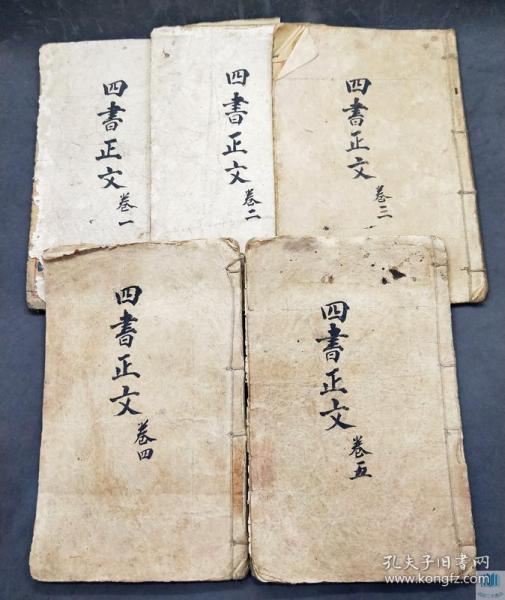 四書正文
卷一
四書正文
卷二
四書正文
卷三
四書正文
卷四
四書正文
卷五
孔夫子旧書网
www.kongfz.com